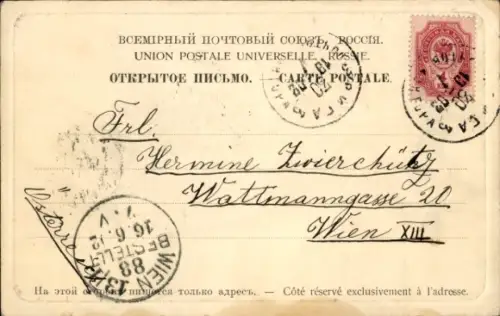 ВСЕМІРНЫЙ ПОЧТОВЫЙ СОЮЗЪ. РОССІЯ.
UNION POSTALE UNIVERSELLE. RUSSIE.
ОТКРЫТОЕ ПИСЬМО. — CARTE POSTALE.
Frl.
Hermine Zwierschütz
Wattmanngasse 20
Wien XIII
Österreich
WIEN
BESTELLT
На этой сторонѣ пишется только адресъ. — Côté réservé exclusivement à l'adresse.